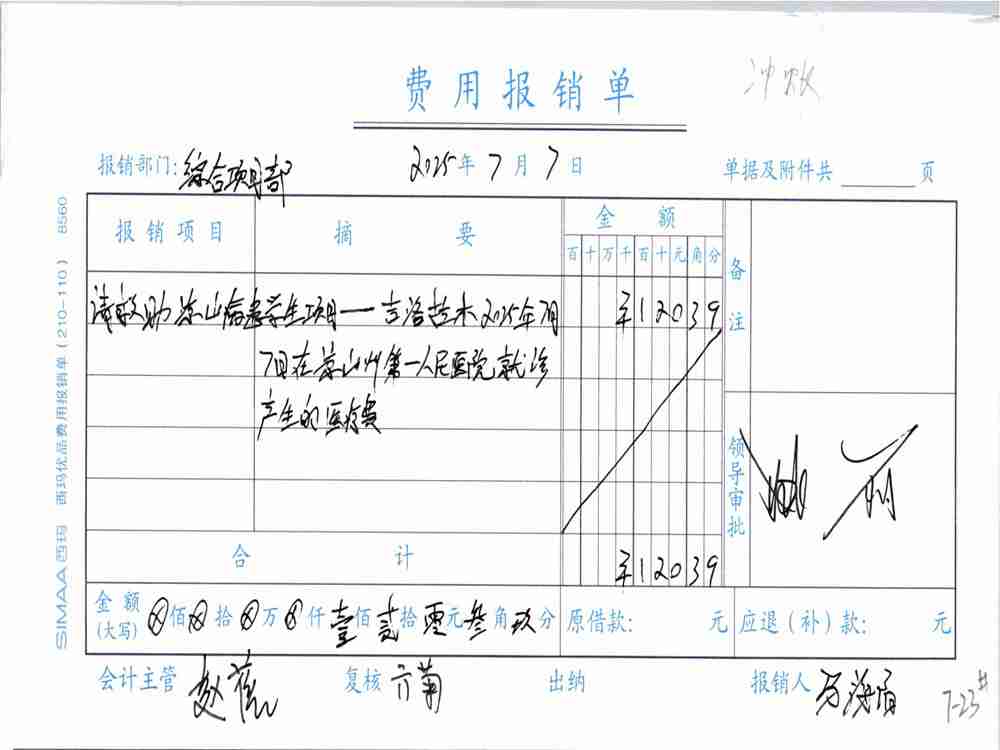 冲账
费用报销单
报销部门:综合项目部 2025年7月7日 单据及附件共 页
报销项目 摘要 金额 备注
百十万千百十元角分
请救助凉山病患学生项目——吉洛苦木2025年7月 ¥12039
7日在凉山州第一人民医院就诊
产生的医疗费
领导审批
合计 ¥12039
金额(大写) ⊗佰⊗拾⊗万⊗仟壹佰贰拾零元叁角玖分 原借款: 元 应退(补)款: 元
会计主管 赵 复核 方菊 出纳 报销人 万海眉
7-23#
SIMAA西玛 西玛优品费用报销单(210-110) 8560